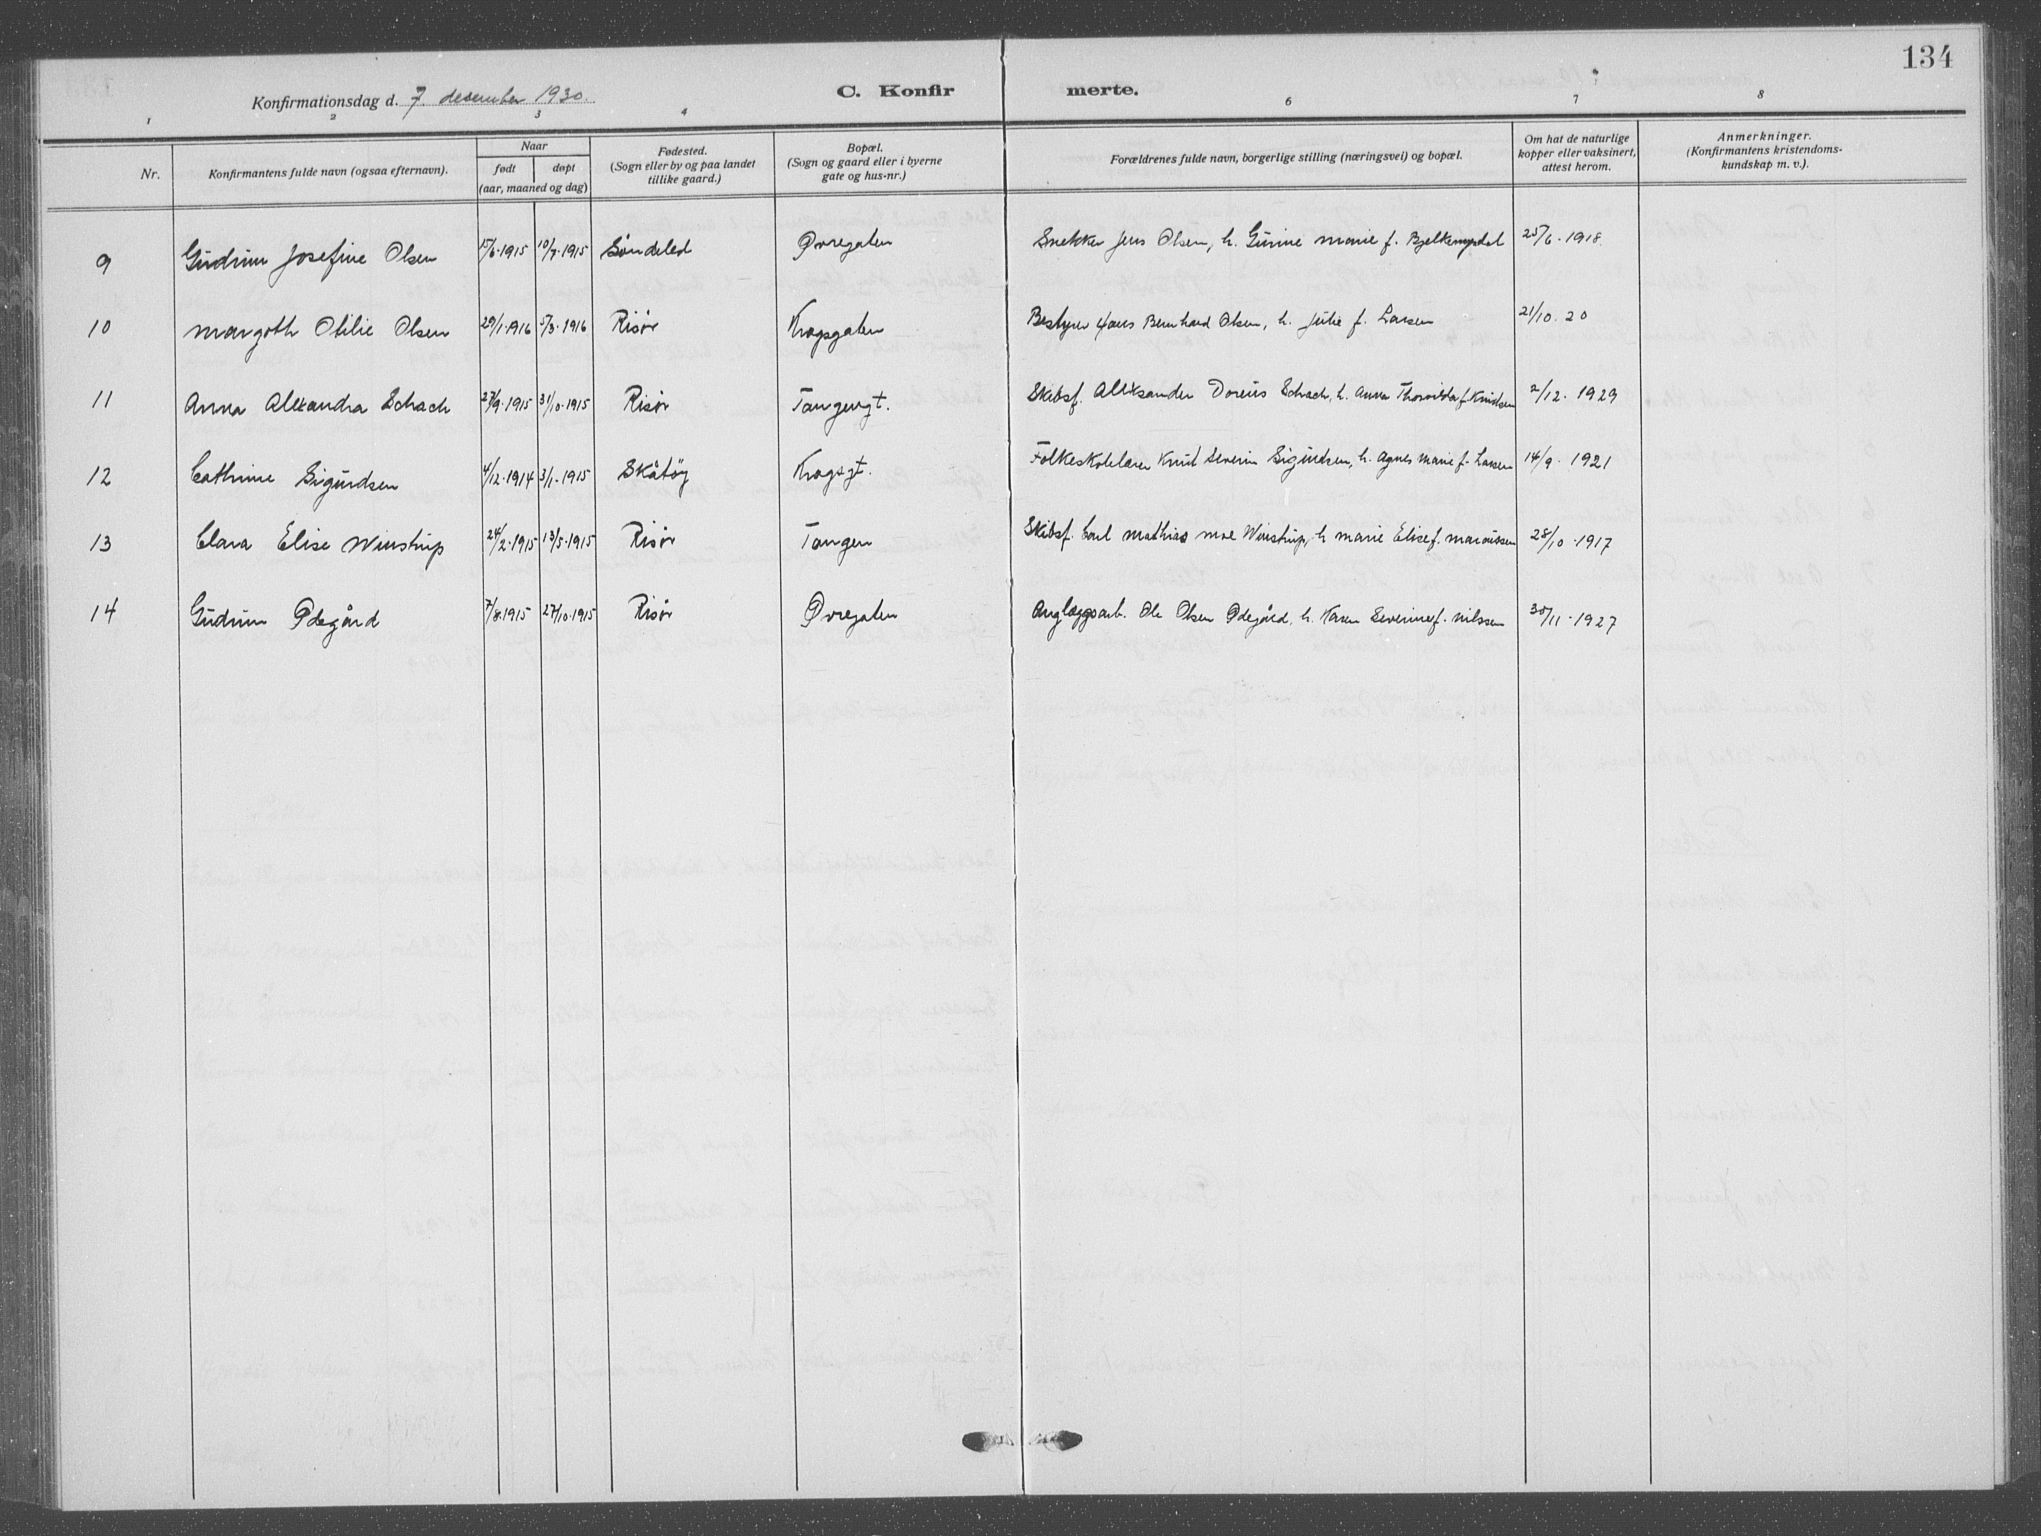 134
Konfirmationsdag d. 7. desember 1930. C. Konfir merte.
1 2 3 4 6 7 8
Nr.
Konfirmantens fulde navn (ogsaa efternavn).
Naar
født døpt
(aar, maaned og dag)
Fødested.
(Sogn eller by og paa landet
tillike gaard.)
Bopæl.
(Sogn og gaard eller i byerne
gate og hus-nr.)
Forældrenes fulde navn, borgerlige stilling (næringsvei) og bopæl.
Om hat de naturlige
kopper eller vaksinert,
attest herom.
Anmerkninger.
(Konfirmantens kristendoms-
kundskap m. v.).
9 Gudrun Josefine Olsen 15/6-1915 10/7-1915 Søndeled Øvregaten Snekker Jens Olsen, h. Gurine Marie f. 25/6-1918
10 Margoth Otilie Olsen 29/1-1916 5/3-1916 Risør Kragsgaten Bestyrer Hans Bernhard Olsen, h. Julie f. Larsen 21/10.20
11 Anna Alexandra Schach 27/9-1915 31/10-1915 Risør Tangengt. Skibsf. Alexsander Doreus Schach, h. Anna Thorvilda f. Knudsen 2/12-1929
12 Cathrine Sigurdsen 4/12-1914 3/1-1915 Skåtøy Kragsgt. Folkeskolelærer Knut Severin Sigurdsen, h. Agnes Marie f. Larsen 14/9-1921
13 Clara Elise Winstrup 24/2-1915 13/5-1915 Risør Tangen Skibsf. Carl Mathias Moe Winstrup, h. Marie Elise f. Marcussen 28/10-1917
14 Gudrun Ødegård 7/8-1915 27/10-1915 Risør Øvregaten Anglæggsarb. Ole Olsen Ødegård, h. Karen Severine f. Nilssen 30/11-1927